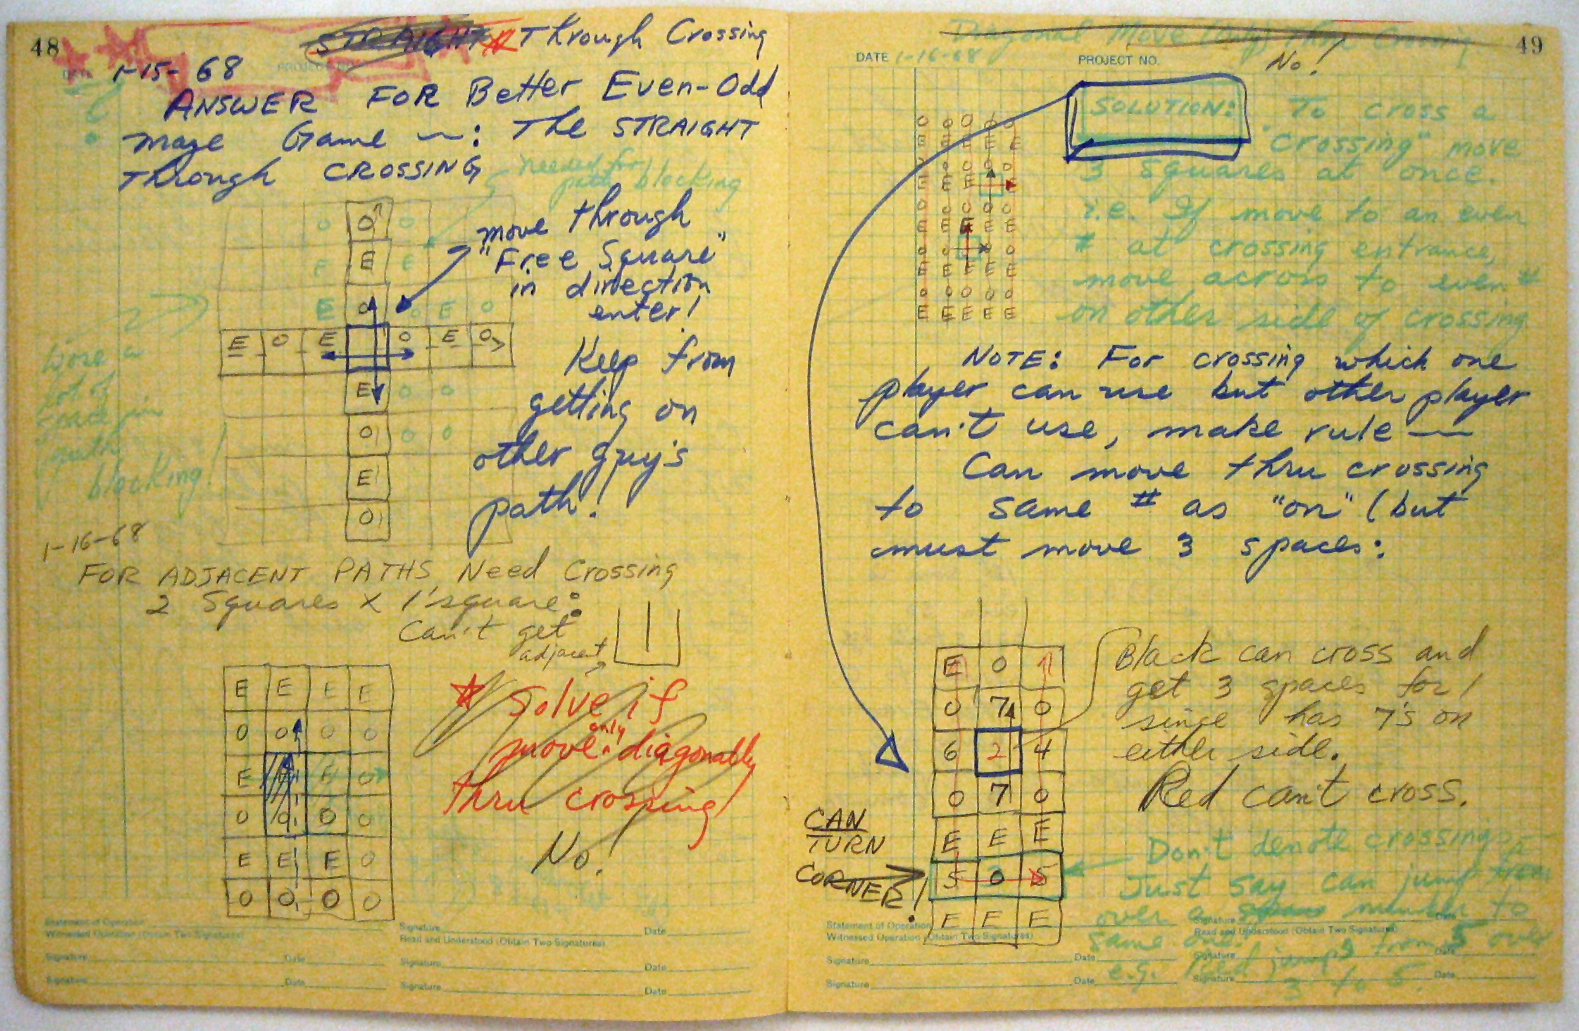 48
STRAIGHT Through Crossing
DATE
PROJECT NO.
1-15-68
ANSWER FOR Better Even-Odd
maze Game —: The STRAIGHT
Through CROSSING
needed for
path blocking
move through
"Free Square"
in direction
enter!
Keep from
getting on
other guy's
path!
O
E
O
E O E O E O
E
O
E
O
lot of
space in
path
blocking!
1-16-68
FOR ADJACENT PATHS, Need Crossing
2 Squares x 1 square:
Can't get
adjacent
E E E E
O O O O
E E O
O O O O
E E E O
O O O O
Solve if
move only diagonally
thru crossing!
No!
Statement of Operation
Witnessed Operation (Obtain Two Signatures)
Signature Date
Signature Date
Signature Date
Read and Understood (Obtain Two Signatures)
Signature Date
Signature Date
49
Diagonal Move (Only) Thru Crossing
No!
DATE 1-16-68
PROJECT NO.
SOLUTION: To cross a
"crossing" move
3 squares at once.
i.e. If move to an even
# at crossing entrance,
move across to even #
on other side of crossing
NOTE: For crossing which one
player can use but other player
can't use, make rule —
Can move thru crossing
to same # as "on" (but
must move 3 spaces:
E O
O 7 O
6 2 4
O 7 O
E E E
5 O 5
E E E
Black can cross and
get 3 spaces for 1
since has 7's on
either side.
Red can't cross.
CAN
TURN
CORNER!
Don't denote crossing
Just say can jump from
over a space number to
same one.
e.g. Red jumps from 5 over
3 to 5.
Statement of Operation
Witnessed Operation (Obtain Two Signatures)
Signature Date
Signature Date
Signature Date
Read and Understood (Obtain Two Signatures)
Signature Date
Signature Date